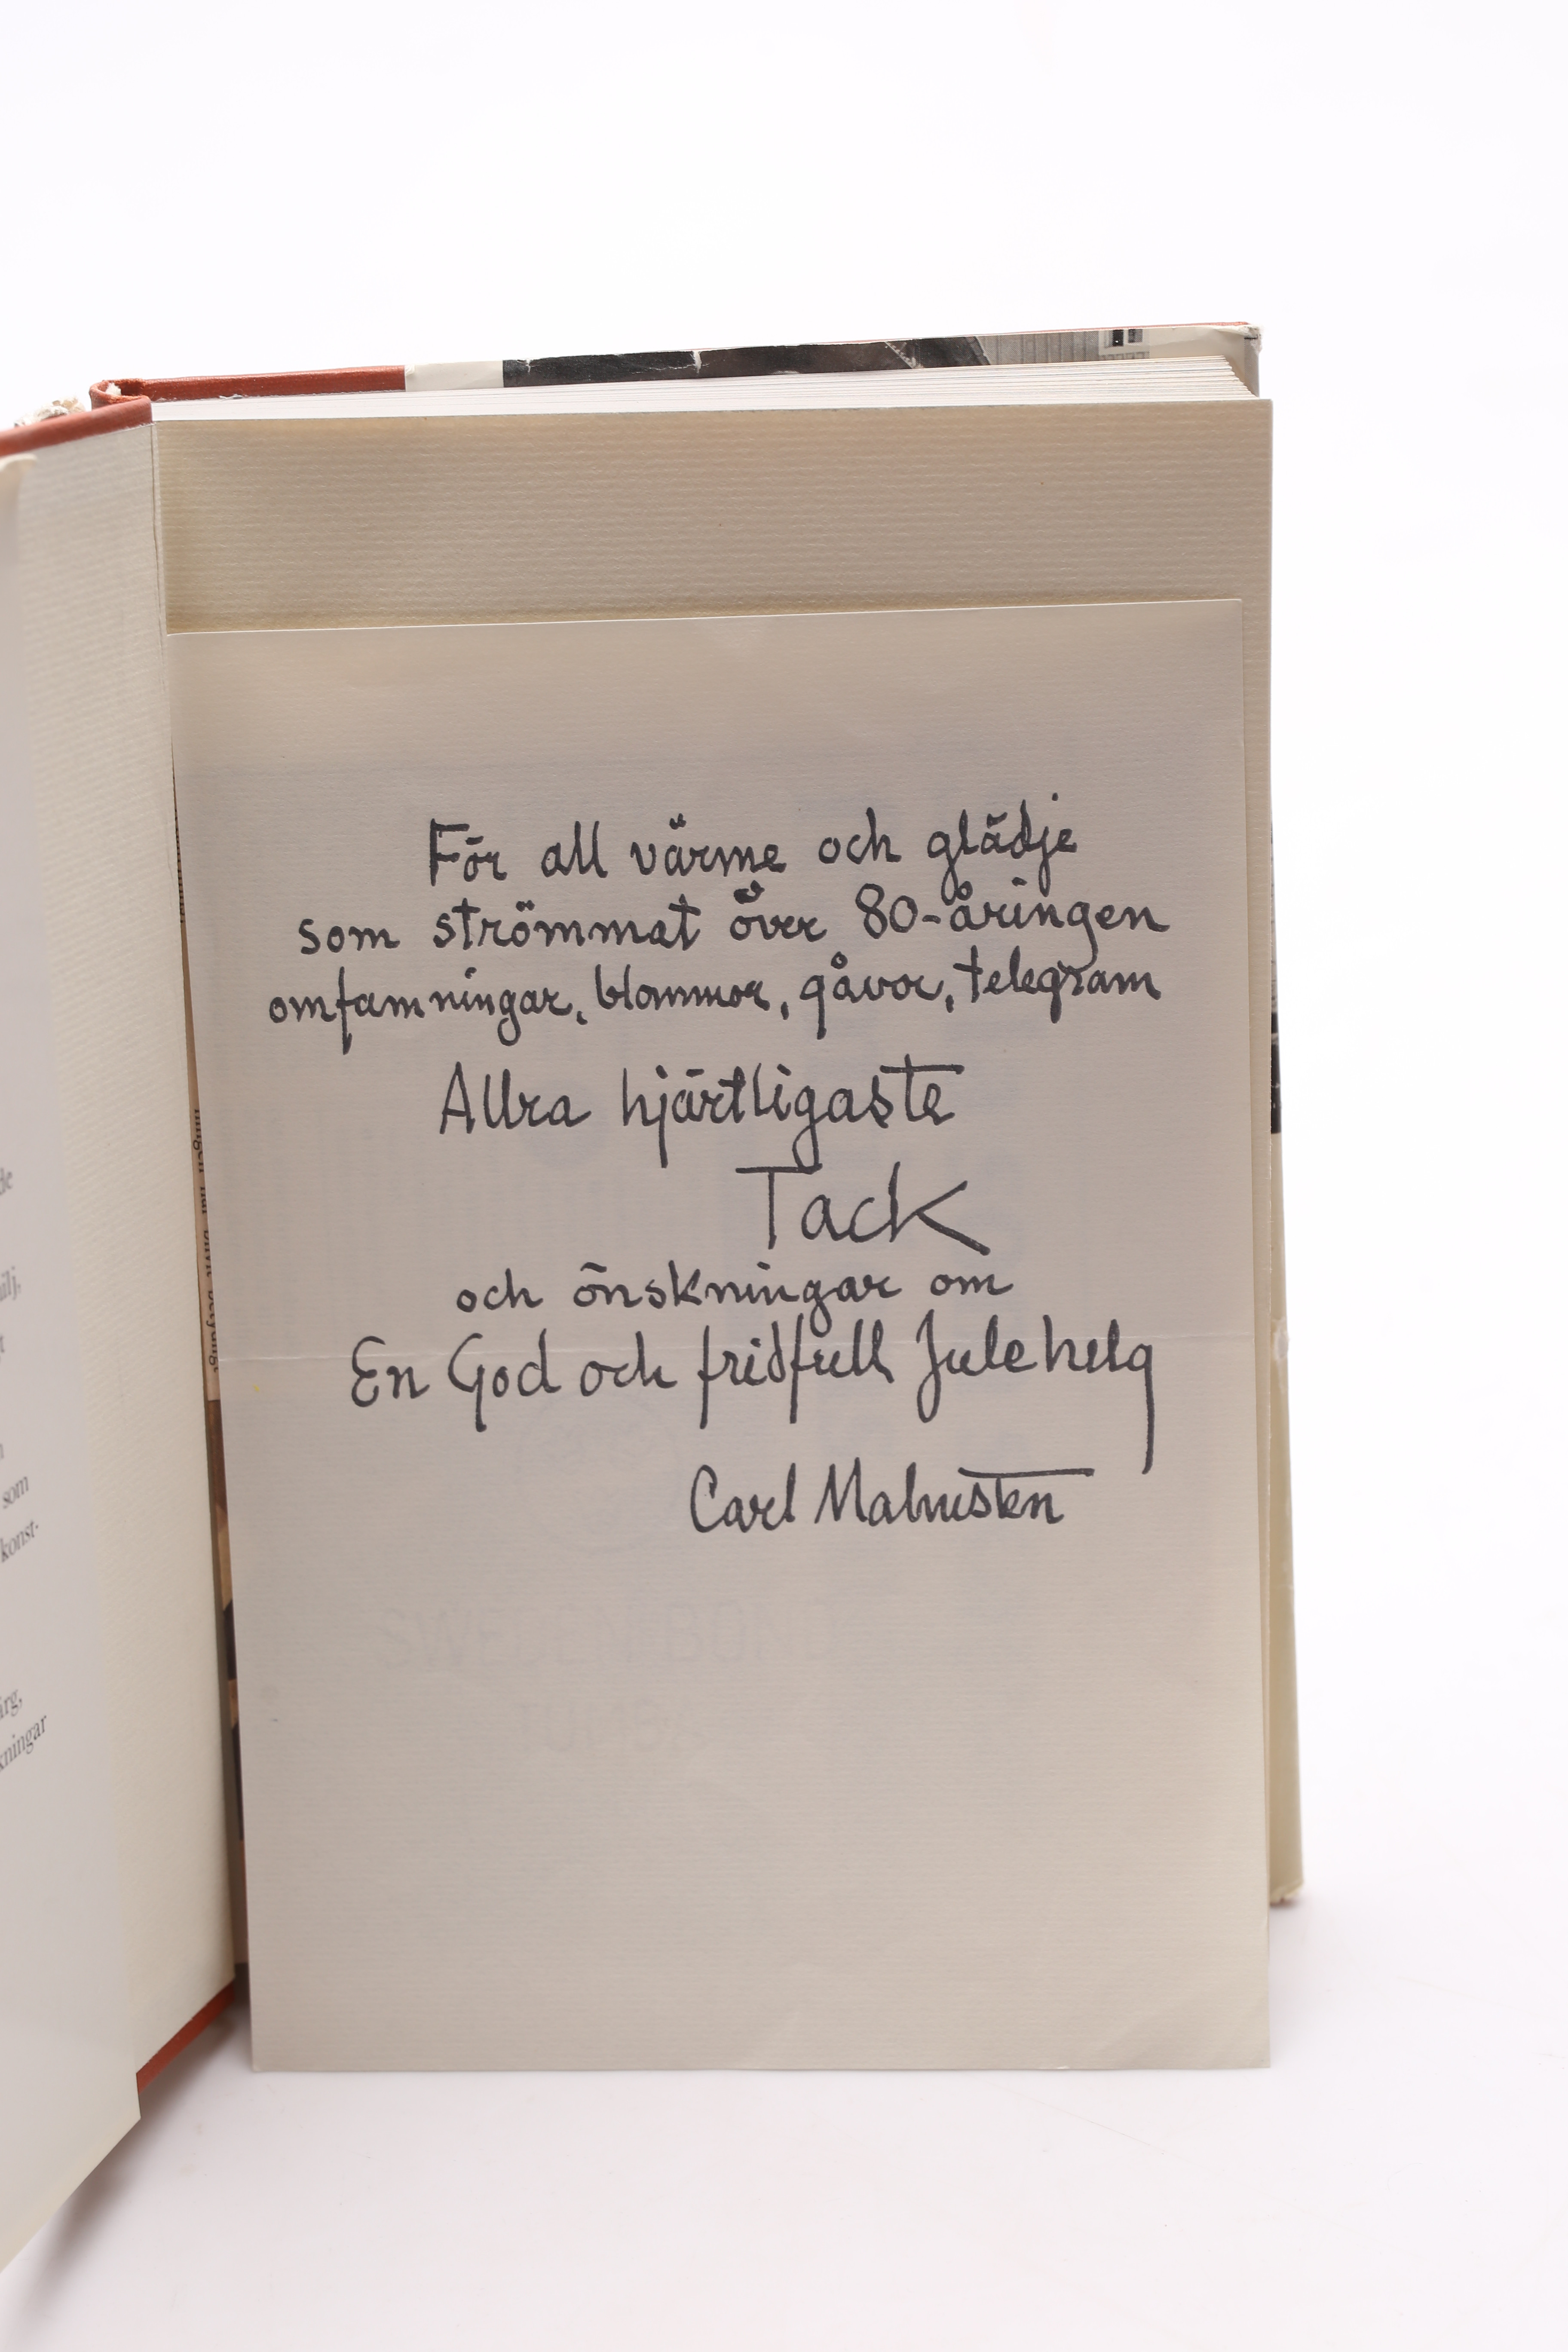 För all värme och glädje
som strömmat över 80-åringen
omfamningar, blommor, gåvor, telegram
Allra hjärtligaste
Tack
och önskningar om
En God och fridfull Julehelg
Carl Malmsten
SWEDEN BOND
de
som
konst-
kningar